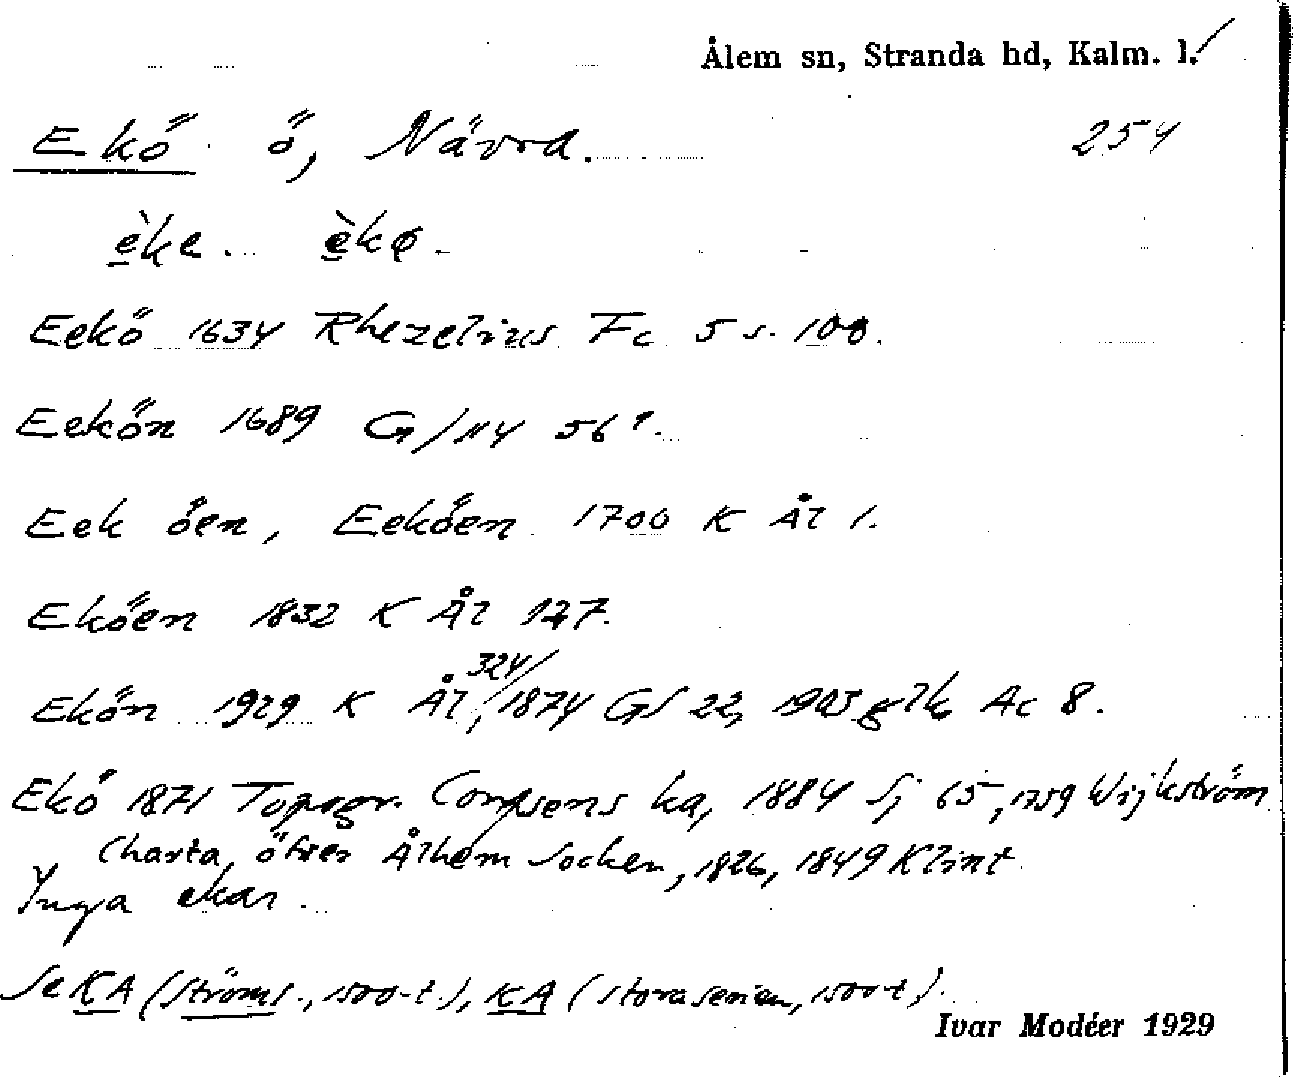 Ålem sn, Stranda hd, Kalm. l.
Ekö ö, Nävra. 254
èke. èkø.
Eekö 1634 Rhezelius Fc 5 s. 100.
Eekön 1689 G/114 56¹.
Eek öen, Eeköen 1700 K Ål 1.
Eköen 1832 K Ål 127.
324/
Ekön 1929 K Ål, 1874 GS 22, 1903 glk Ac 8.
Ekö 1871 Topogr. Corpsens ka, 1884 Sj 65, 1759 Wijkström
Charta, öfver Ålhem Socken, 1826, 1849 Klint
Inga ekar.
Se KA (Ströms., 1500-t.), KA (stora serien, 1500-t).
Ivar Modéer 1929